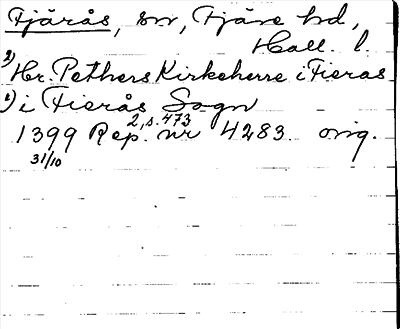 Fjärås, sn, Fjäre hd,
Hall. l.
2) Hr. Pethers Kirkeherre i Fieras
1) i Fierås Sogn
2, s. 473
1399 Rep. nr 4283. orig.
31/10